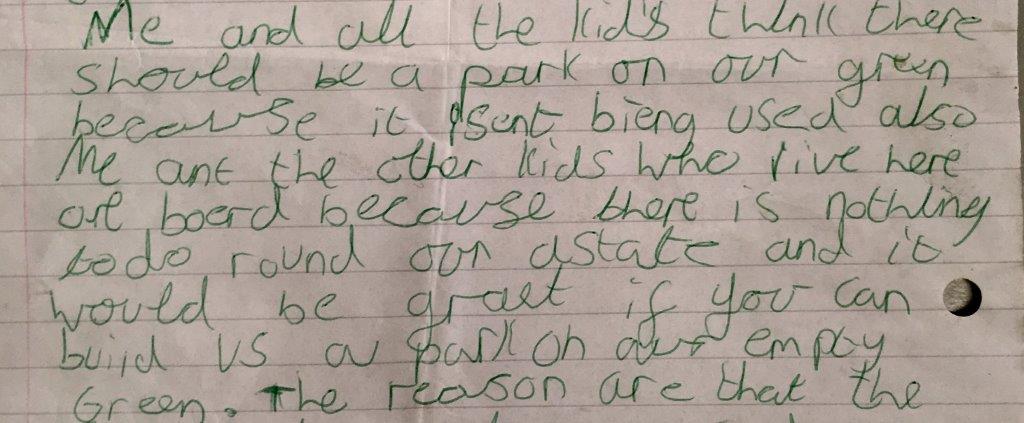 Me and all the kids think there
should be a park on our green
because it isent bieng used also
Me ant the other kids who live here
are board because there is nothing
todo round our astate and it
would be graet if you can
build us a park on our empty
Green. The reason are that the